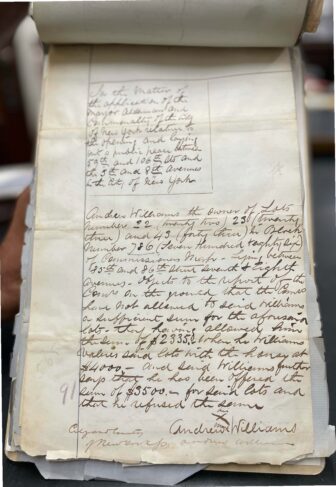 In the Matter of
the application of the
Mayor Aldermen and
Commonalty of the City
of New York relative to
the opening and laying
out a public place between
59th and 106th Sts and
the 5th and 8th Avenues
in the City of New York
Andrew Williams the owner of Lots
number 22 (twenty two) 23 (twenty
three) and 43 (forty three) in Block
Number 786 (Seven Hundred & Eighty Six)
of Commissioners Map - lying between
85th and 86th Street Seventh & Eighth
Avenues - Objects to the report of the
Com on the ground that the
have not allowed to said Williams
a sufficient sum for the aforesaid
lots - they having allowed him
the sum of $2335 When he Williams
values said lots with the house at
$4000 - And said Williams further
says that he has been offered the
sum of $3500 - for said lots and
that he refused the same
91
Andrew Williams
Andrew Williams